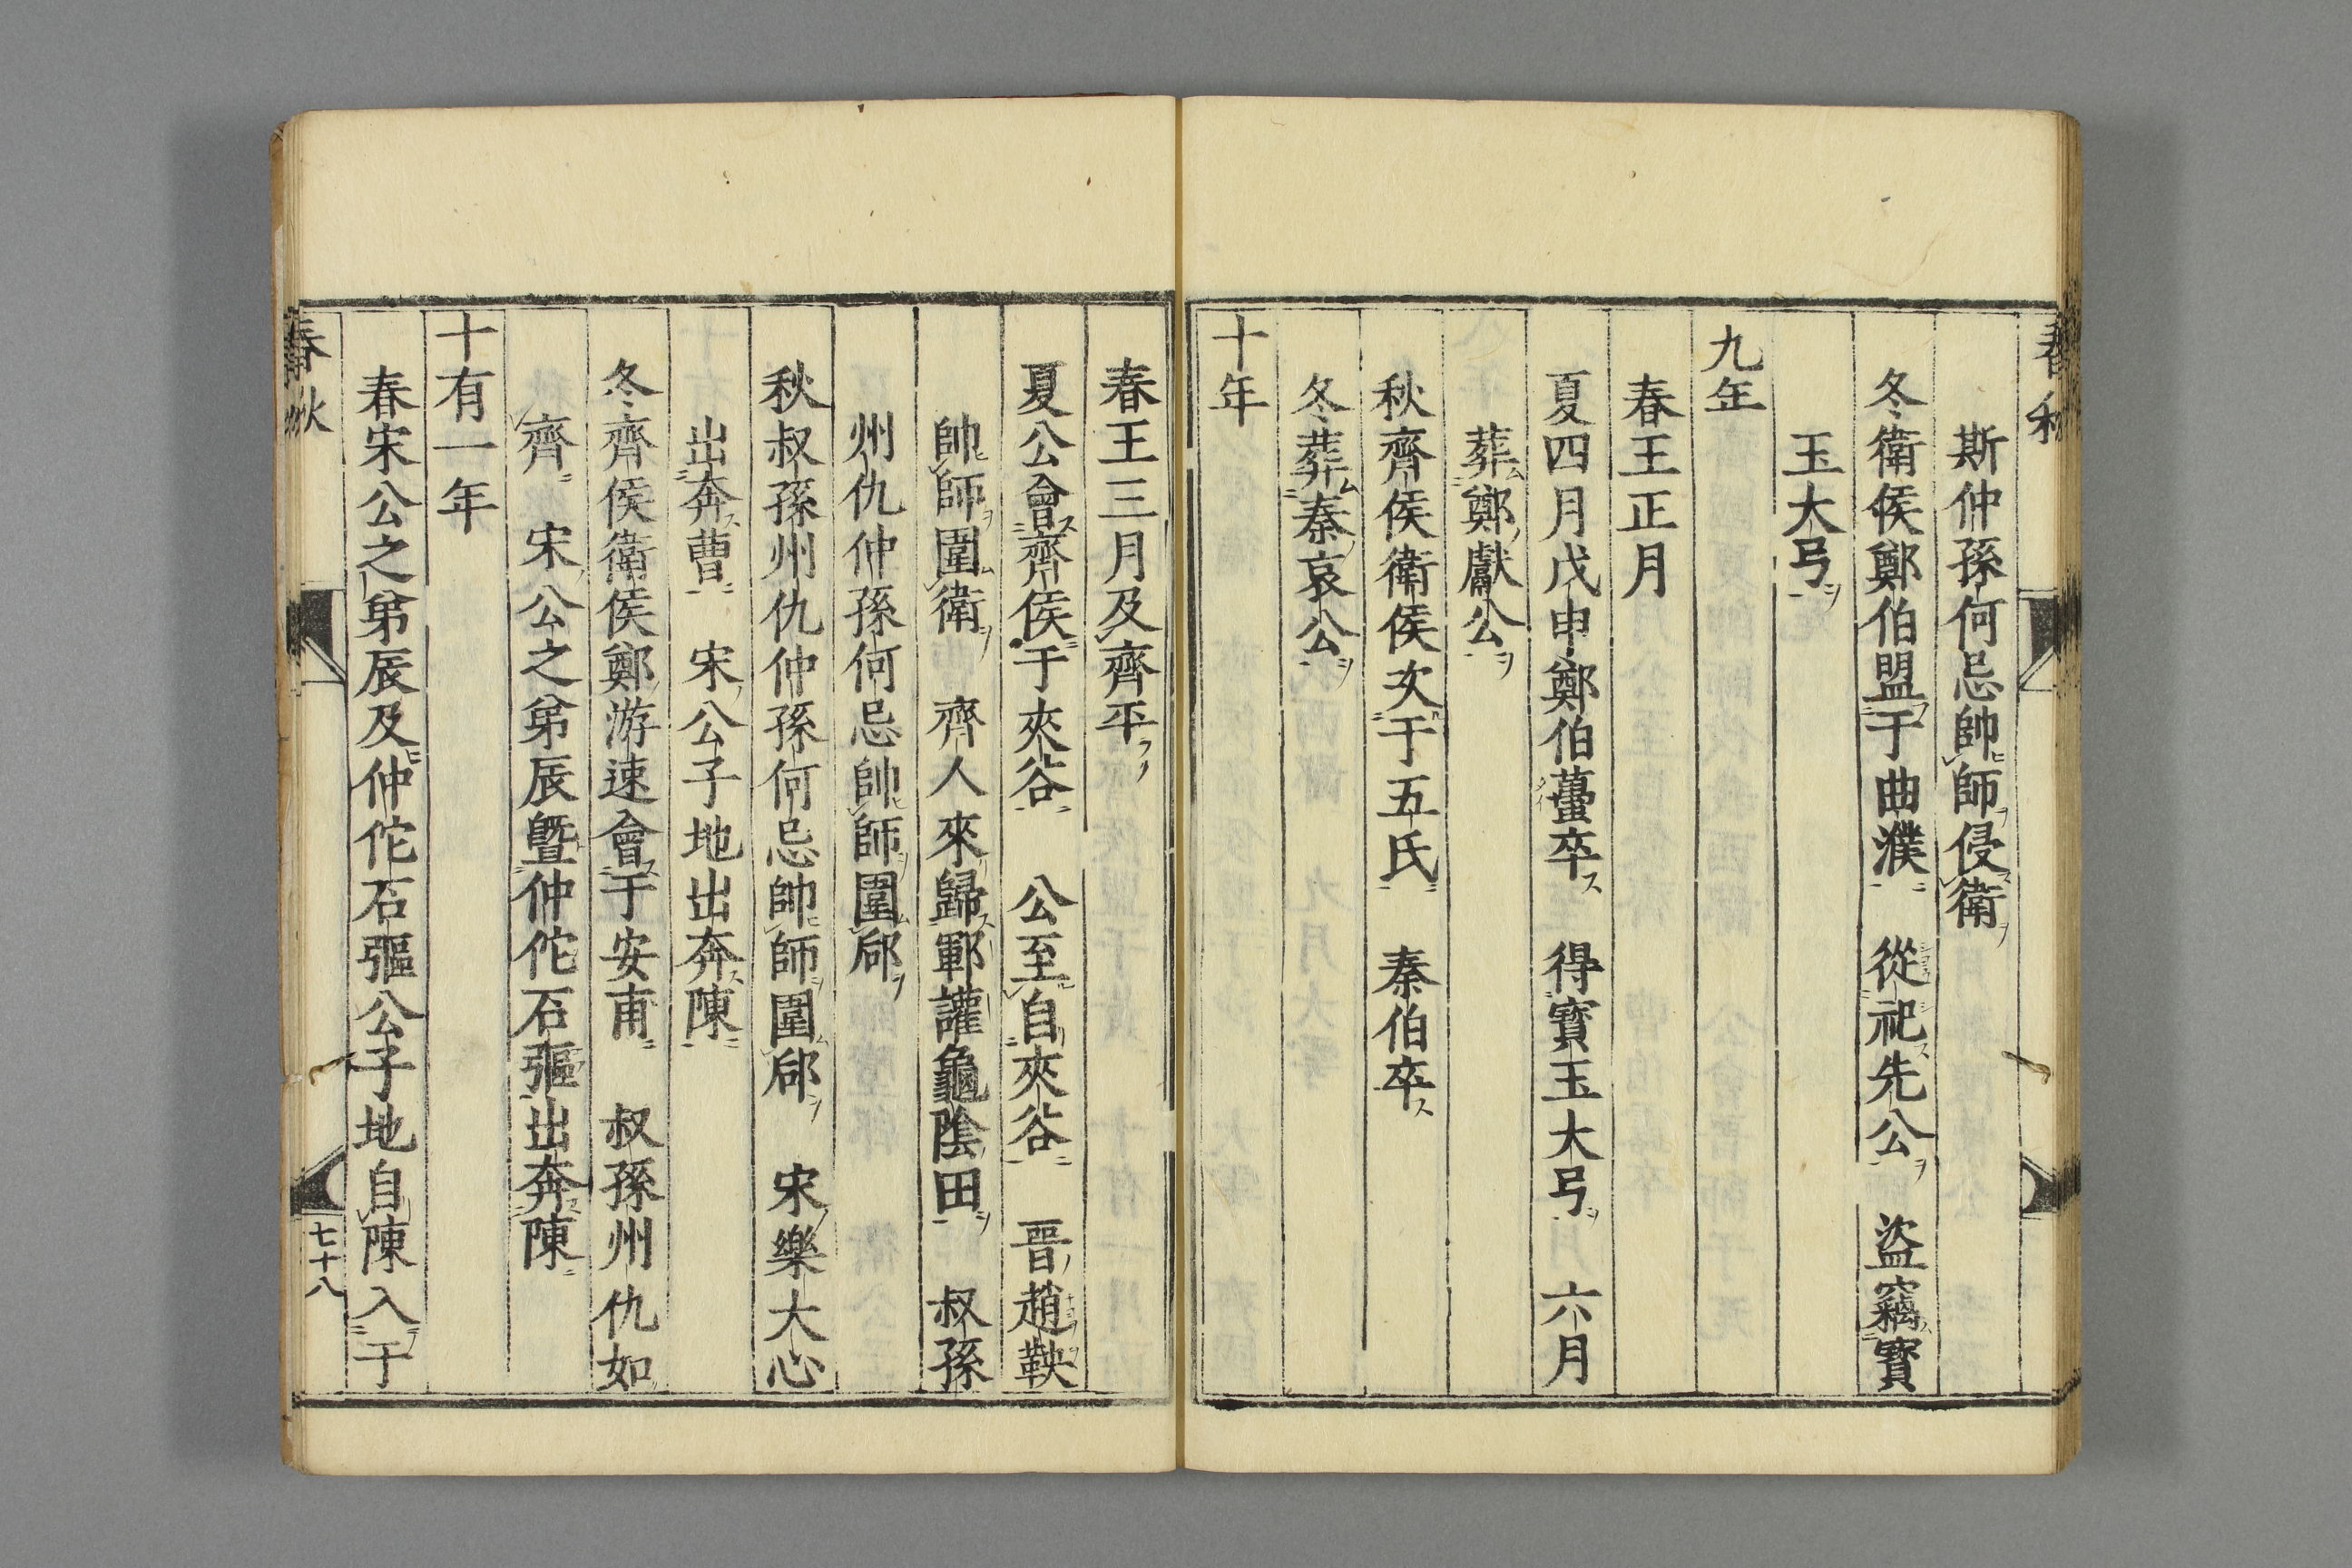 春秋
斯仲孫何忌帥師侵衛
冬衛侯鄭伯盟于曲濮　從祀先公　盜竊寶
玉大弓
九年
春王正月
夏四月戊申鄭伯蠆卒　得寶玉大弓　六月
葬鄭獻公
秋齊侯衛侯次于五氏　秦伯卒
冬葬秦哀公
十年
春王三月及齊平
夏公會齊侯于夾谷　公至自夾谷　晉趙鞅
帥師圍衛　齊人來歸鄆讙龜陰田　叔孫
州仇仲孫何忌帥師圍郈
秋叔孫州仇仲孫何忌帥師圍郈　宋樂大心
出奔曹　宋公子地出奔陳
冬齊侯衛侯鄭游速會于安甫　叔孫州仇如
齊　宋公之弟辰曁仲佗石彄出奔陳
十有一年
春宋公之弟辰及仲佗石彄公子地自陳入于
春秋
七十八